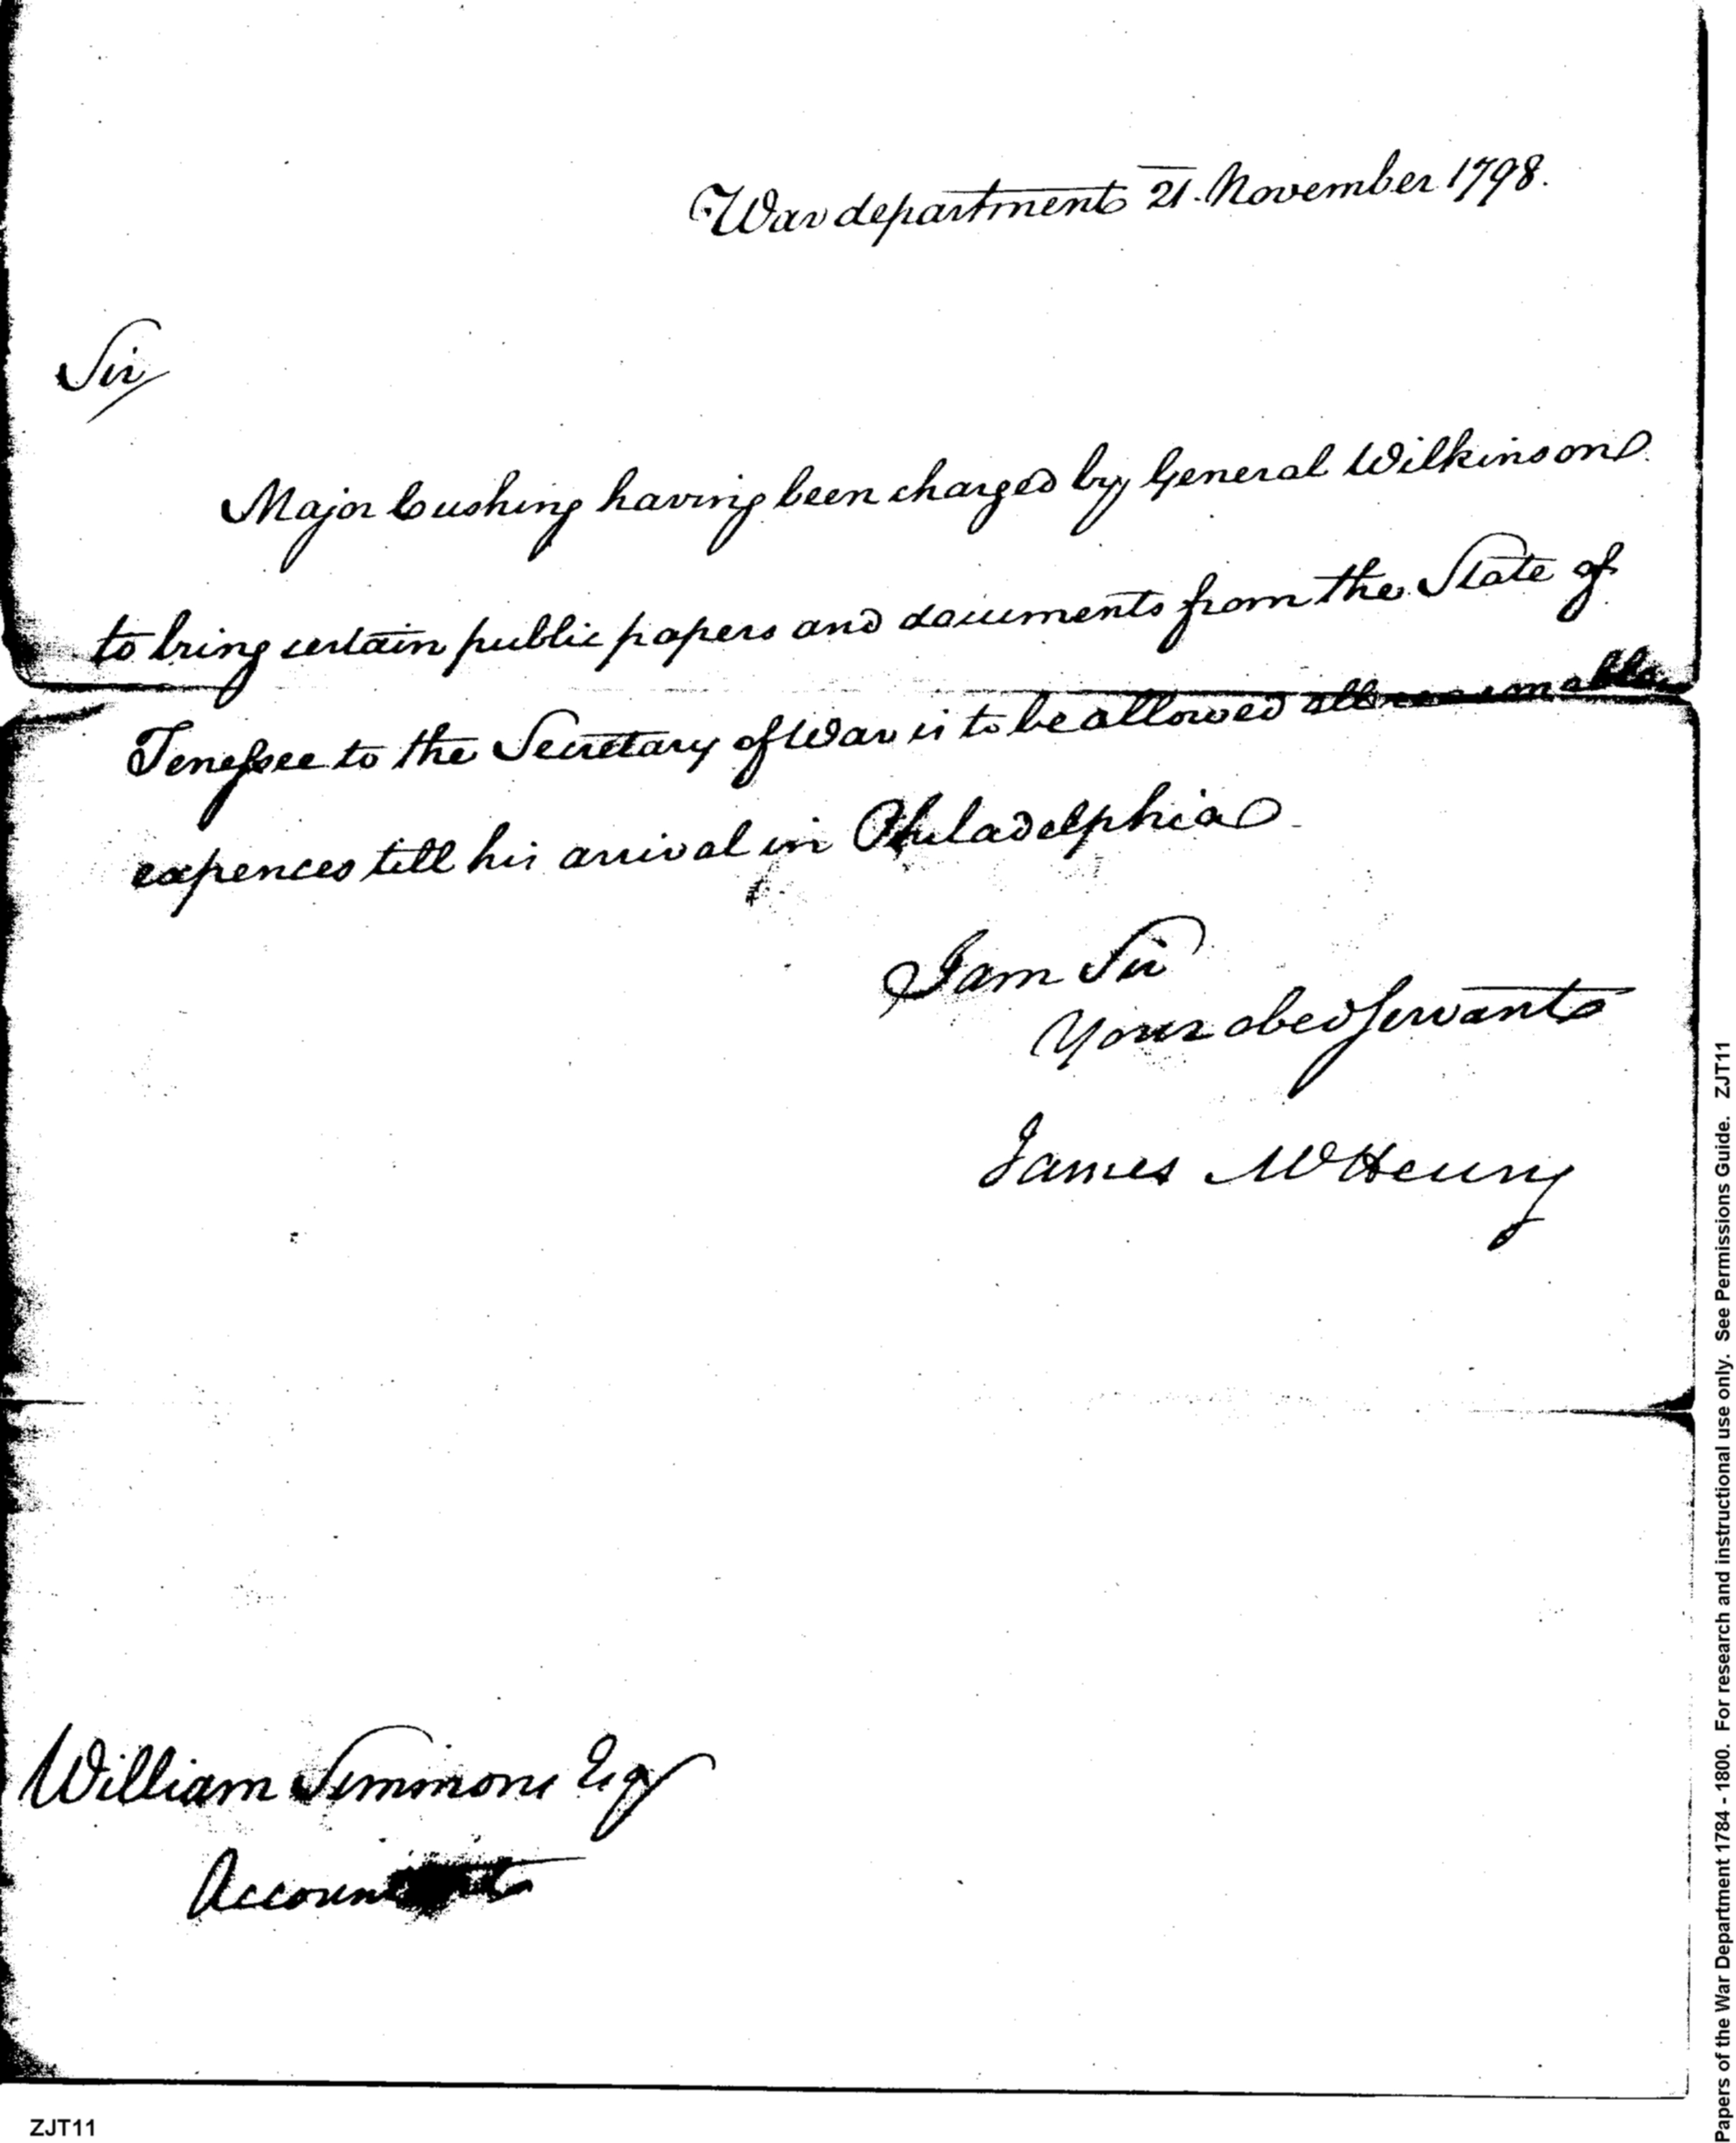 War department 21. November 1798.
Sir
Major Cushing having been charged by General Wilkinson
to bring certain public papers and documents from the State of
Tenessee to the Secretary of War is to be allowed all reasonable
expences till his arrival in Philadelphia
I am Sir
Your obed Servant
James McHenry
William Simmons Esqr
Accountant
ZJT11
Papers of the War Department 1784 - 1800. For research and instructional use only. See Permissions Guide. ZJT11